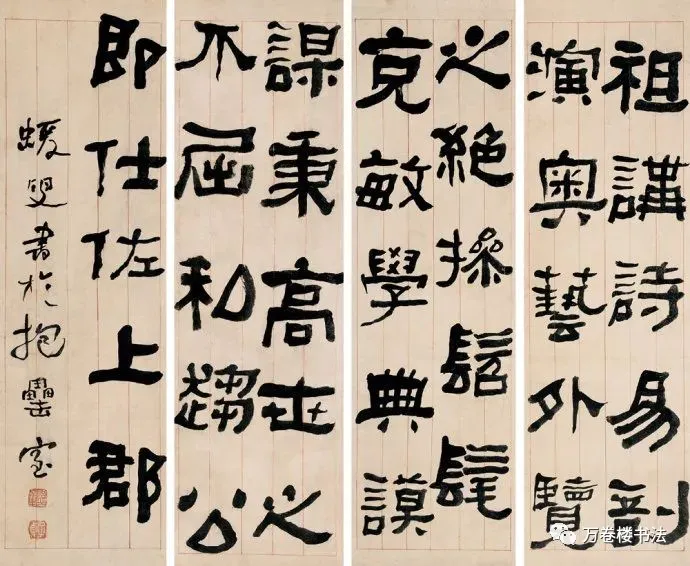 祖講詩易剖
演奧藝外覽
之絕操髫髦
克敏學典謨
謀秉高世之
不屈和趨公
即仕佐上郡
蝯叟書於抱罍室
万卷楼书法